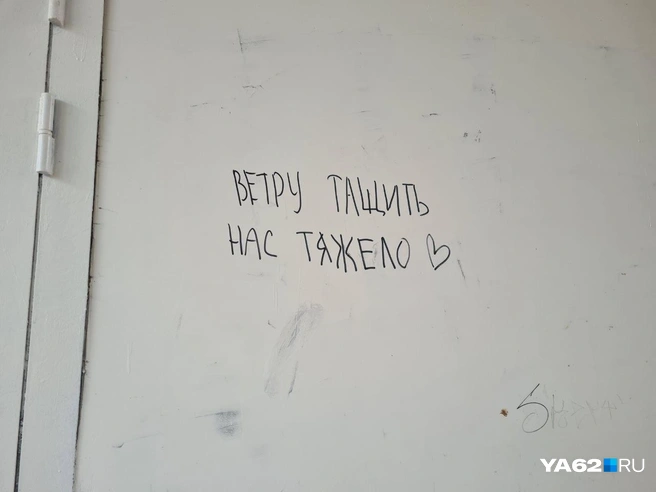 ВЕТРУ ТАЩИТЬ
НАС ТЯЖЕЛО
YA62 RU